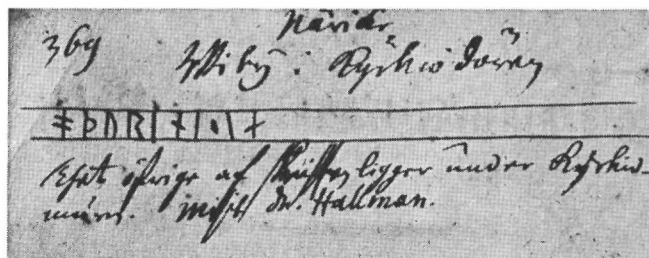 Närike
369 Wiby i Kyrkiodören
ᚦᚢᚱᛁ
Thet öfrige af skriften ligger under Kyrkio-
muren. misit Dn. Hallman.